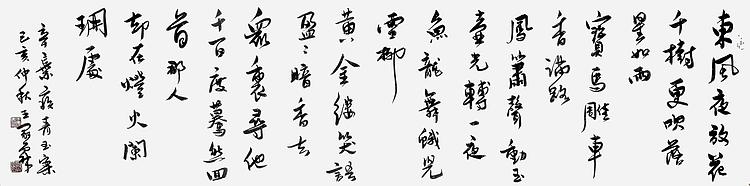 東風夜放花
千樹更吹落
星如雨
寶馬雕車
香滿路
鳳簫聲動玉
壺光轉一夜
魚龍舞蛾兒
雪柳
黃金縷笑語
盈々暗香去
衆裏尋他
千百度驀然回
首那人
却在燈火闌
珊處
辛棄疾青玉案
己亥仲秋